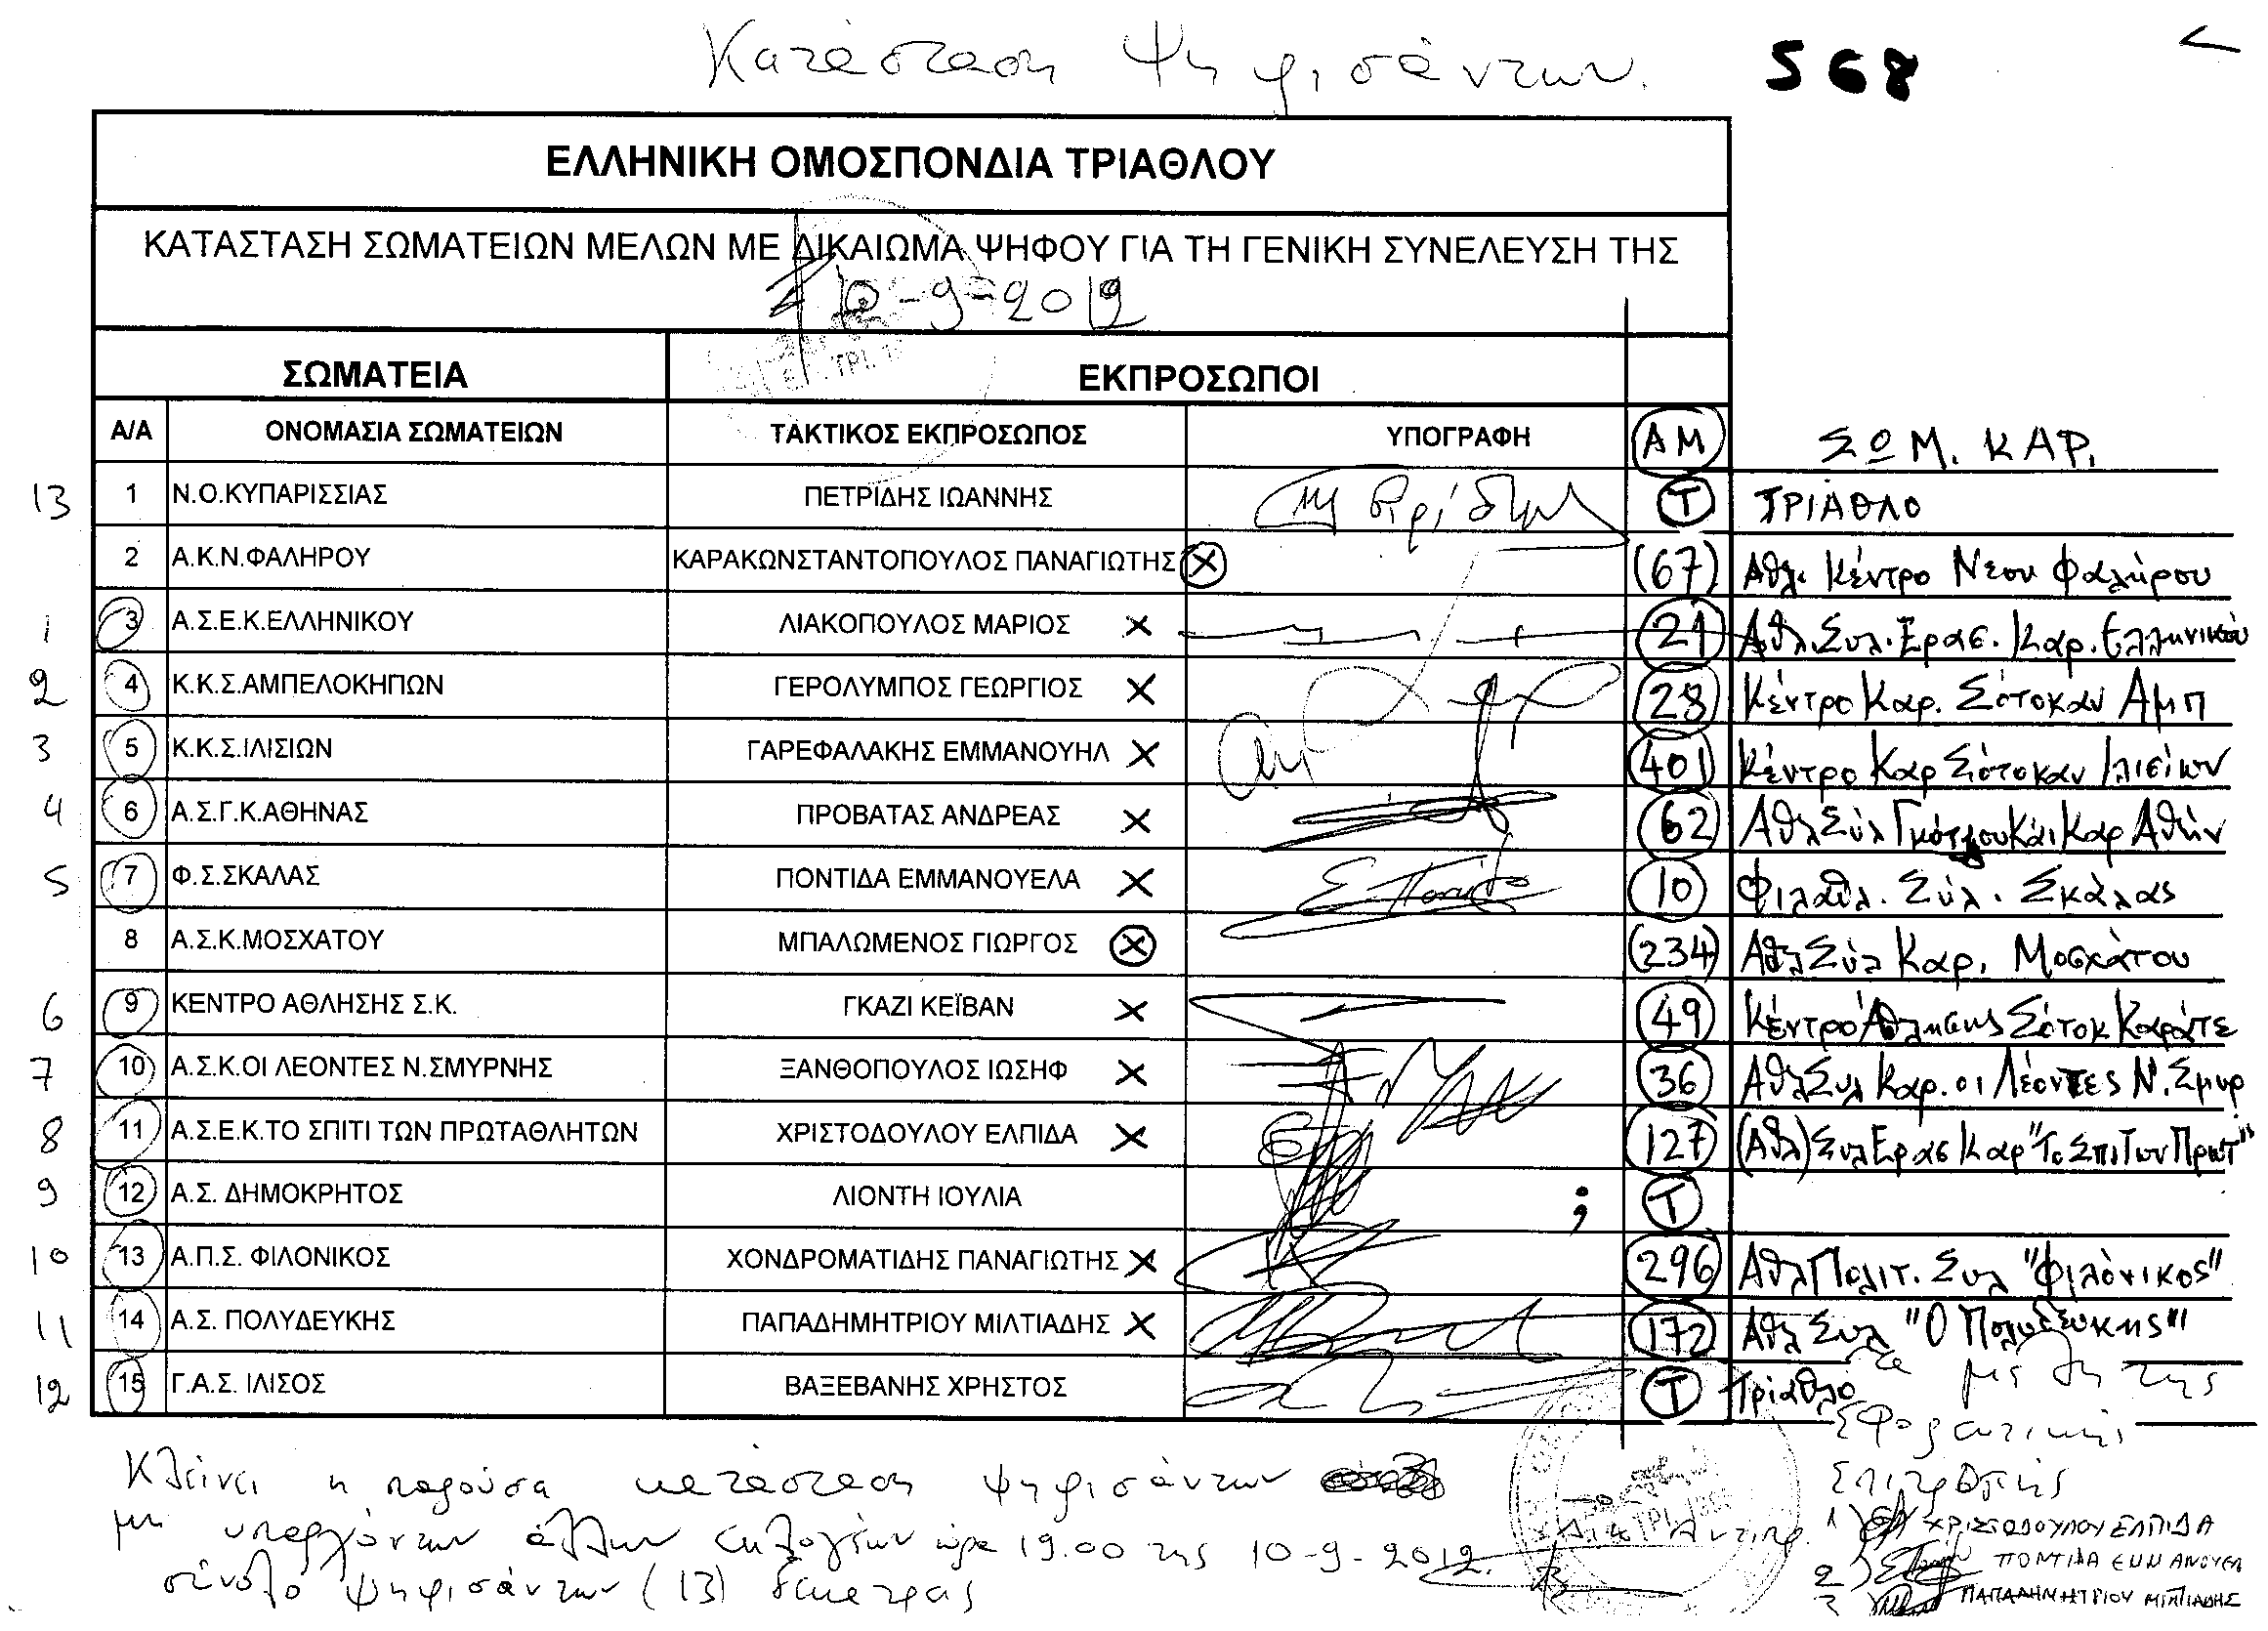 Κατάσταση Ψηφισάντων. 568
ΕΛΛΗΝΙΚΗ ΟΜΟΣΠΟΝΔΙΑ ΤΡΙΑΘΛΟΥ
ΚΑΤΑΣΤΑΣΗ ΣΩΜΑΤΕΙΩΝ ΜΕΛΩΝ ΜΕ ΔΙΚΑΙΩΜΑ ΨΗΦΟΥ ΓΙΑ ΤΗ ΓΕΝΙΚΗ ΣΥΝΕΛΕΥΣΗ ΤΗΣ
10-9-2012
ΣΩΜΑΤΕΙΑ ΕΚΠΡΟΣΩΠΟΙ
Α/Α ΟΝΟΜΑΣΙΑ ΣΩΜΑΤΕΙΩΝ ΤΑΚΤΙΚΟΣ ΕΚΠΡΟΣΩΠΟΣ ΥΠΟΓΡΑΦΗ ΑΜ ΣΩΜ. ΚΑΡ.
13 1 Ν.Ο.ΚΥΠΑΡΙΣΣΙΑΣ ΠΕΤΡΙΔΗΣ ΙΩΑΝΝΗΣ Τ ΤΡΙΑΘΛΟ
2 Α.Κ.Ν.ΦΑΛΗΡΟΥ ΚΑΡΑΚΩΝΣΤΑΝΤΟΠΟΥΛΟΣ ΠΑΝΑΓΙΩΤΗΣ X (67) Αθλ. Κέντρο Νεου Φαλήρου
1 3 Α.Σ.Ε.Κ.ΕΛΛΗΝΙΚΟΥ ΛΙΑΚΟΠΟΥΛΟΣ ΜΑΡΙΟΣ X 21 Αθλ.Συλ.Ερασ. Καρ. Ελληνικού
2 4 Κ.Κ.Σ.ΑΜΠΕΛΟΚΗΠΩΝ ΓΕΡΟΛΥΜΠΟΣ ΓΕΩΡΓΙΟΣ X 28 Κέντρο Καρ. Σότοκαν Αμπ
3 5 Κ.Κ.Σ.ΙΛΙΣΙΩΝ ΓΑΡΕΦΑΛΑΚΗΣ ΕΜΜΑΝΟΥΗΛ X 401 Κέντρο Καρ Σότοκαν Ιλισίων
4 6 Α.Σ.Γ.Κ.ΑΘΗΝΑΣ ΠΡΟΒΑΤΑΣ ΑΝΔΡΕΑΣ X 62 Αθλ Συλ Και Καρ Αθήν
5 7 Φ.Σ.ΣΚΑΛΑΣ ΠΟΝΤΙΔΑ ΕΜΜΑΝΟΥΕΛΑ X 10 Φιλαθλ. Σύλ. Σκάλας
8 Α.Σ.Κ.ΜΟΣΧΑΤΟΥ ΜΠΑΛΩΜΕΝΟΣ ΓΙΩΡΓΟΣ X (234) Αθλ Σύλ Καρ. Μοσχάτου
6 9 ΚΕΝΤΡΟ ΑΘΛΗΣΗΣ Σ.Κ. ΓΚΑΖΙ ΚΕΪΒΑΝ X 49 Κέντρο Άθλησης Σότοκ Καράτε
7 10 Α.Σ.Κ.ΟΙ ΛΕΟΝΤΕΣ Ν.ΣΜΥΡΝΗΣ ΞΑΝΘΟΠΟΥΛΟΣ ΙΩΣΗΦ X 36 Αθλ Συλ Καρ. οι Λέοντες Ν. Σμυρ
8 11 Α.Σ.Ε.Κ.ΤΟ ΣΠΙΤΙ ΤΩΝ ΠΡΩΤΑΘΛΗΤΩΝ ΧΡΙΣΤΟΔΟΥΛΟΥ ΕΛΠΙΔΑ X 127 (Αθλ) Συλ Ερασ Καρ "Το Σπι Των Πρωτ"
9 12 Α.Σ. ΔΗΜΟΚΡΗΤΟΣ ΛΙΟΝΤΗ ΙΟΥΛΙΑ ; Τ
10 13 Α.Π.Σ. ΦΙΛΟΝΙΚΟΣ ΧΟΝΔΡΟΜΑΤΙΔΗΣ ΠΑΝΑΓΙΩΤΗΣ X 296 Αθλ Πολιτ. Συλ "Φιλόνικος"
11 14 Α.Σ. ΠΟΛΥΔΕΥΚΗΣ ΠΑΠΑΔΗΜΗΤΡΙΟΥ ΜΙΛΤΙΑΔΗΣ X 172 Αθλ Συλ "Ο Πολυδεύκης"
12 15 Γ.Α.Σ. ΙΛΙΣΟΣ ΒΑΞΕΒΑΝΗΣ ΧΡΗΣΤΟΣ Τ Τρίαθλο
Τα μέλη της
Εφορευτικής
Επιτροπής
Κλείνει η παρούσα κατάσταση ψηφισάντων
μη υπαρχόντων άλλων εκλογέων ώρα 19.00 της 10-9-2012.
σύνολο ψηφισάντων (13) δεκατρείς
1) ΧΡΙΣΤΟΔΟΥΛΟΥ ΕΛΠΙΔΑ
2) ΠΟΝΤΙΔΑ ΕΜΜΑΝΟΥΕΛΑ
3 ΠΑΠΑΔΗΜΗΤΡΙΟΥ ΜΙΛΤΙΑΔΗΣ